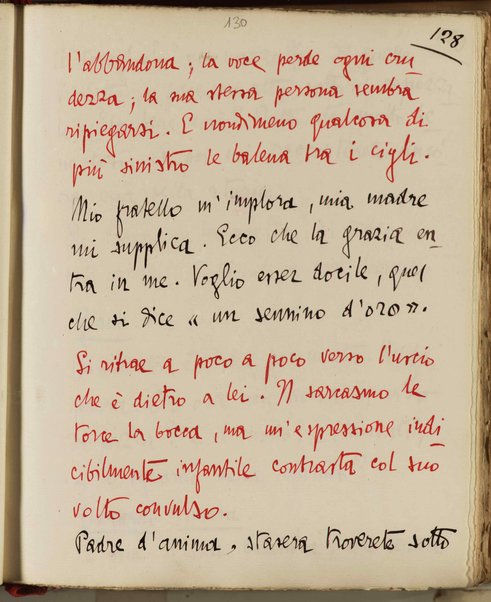 130
128
l'abbandona ; la voce perde ogni cru
dezza ; la sua stessa persona sembra
ripiegarsi. E nondimeno qualcosa di
più sinistro le balena tra i cigli.
Mio fratello m'implora, mia madre
mi supplica. Ecco che la grazia en
tra in me. Voglio esser docile, quel
che si dice « un sennino d'oro ».
Si ritrae a poco a poco verso l'uscio
che è dietro a lei. Il sarcasmo le
torce la bocca, ma un'espressione indi
cibilmente infantile contrasta col suo
volto convulso.
Padre d'anima, stasera troverete sotto